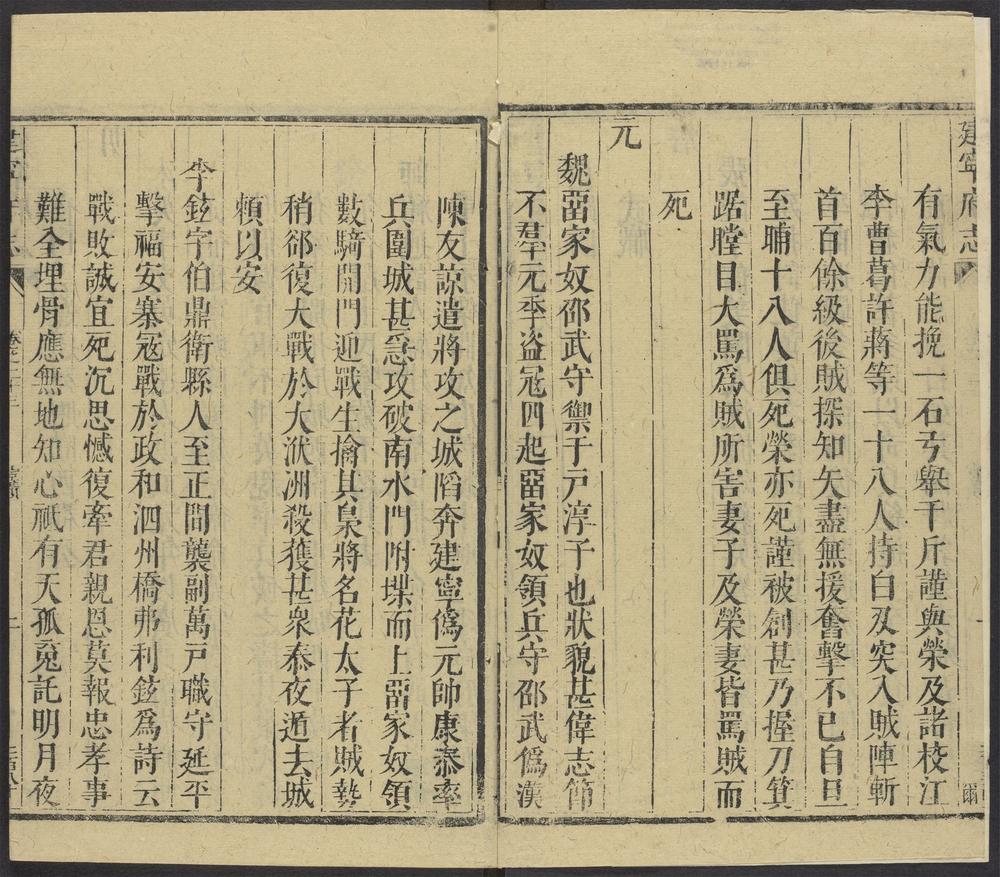 建寧府志
有氣力能挽一石弓舉千斤謹與榮及諸校江
李曹葛許蔣等一十八人持白刃突入賊陣斬
首百餘級後賊探知矢盡無援奮擊不已自旦
至晡十八人俱死榮亦死謹被創甚乃握刀箕
踞瞠目大罵爲賊所害妻子及榮妻皆罵賊而
死
元
魏畱家奴邵武守禦千戸淳子也狀貌甚偉志節
不羣元季盗冦四起畱家奴領兵守邵武僞漢
陳友諒遣將攻之城陷奔建寧僞元帥康泰率
兵圍城甚急攻破南水門附堞而上畱家奴領
數騎開門迎戰生擒其梟將名花太子者賊勢
稍郤復大戰於大洑洲殺獲甚衆泰夜遁去城
頼以安
李鉉字伯鼎衛縣人至正間襲副萬戸職守延平
擊福安寨冦戰於政和泗州橋弗利鉉爲詩云
戰敗誠宜死沉思憾復牽君親恩莫報忠孝事
難全埋骨應無地知心祇有天孤寃託明月夜